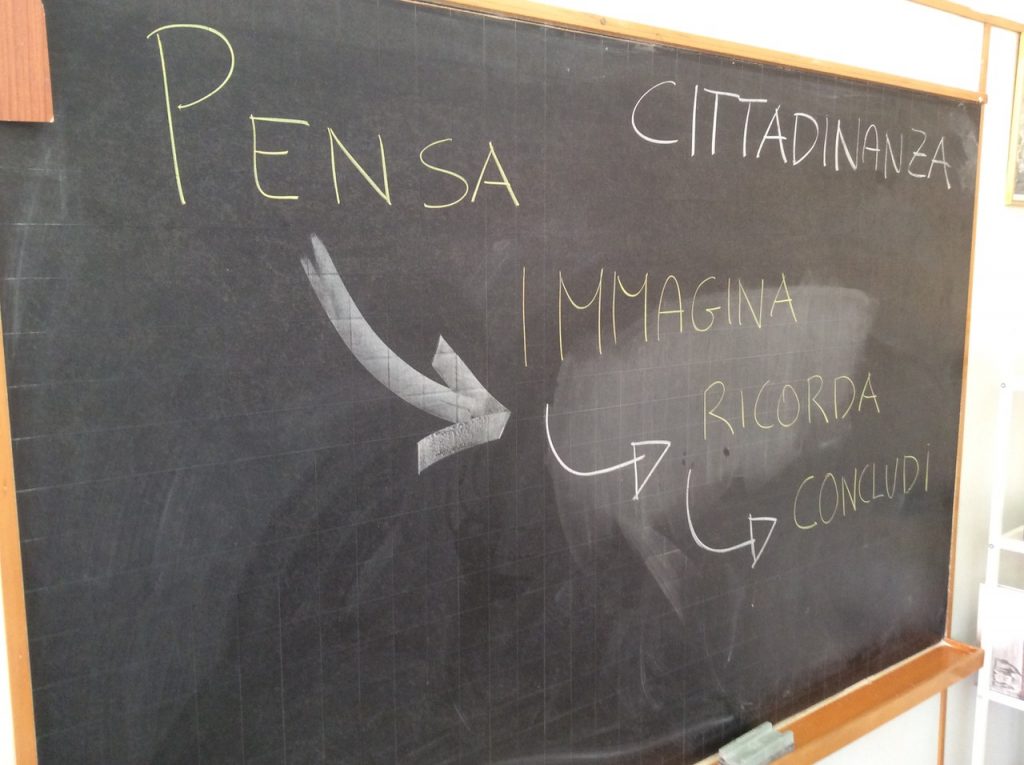 PENSA
CITTADINANZA
IMMAGINA
RICORDA
CONCLUDi